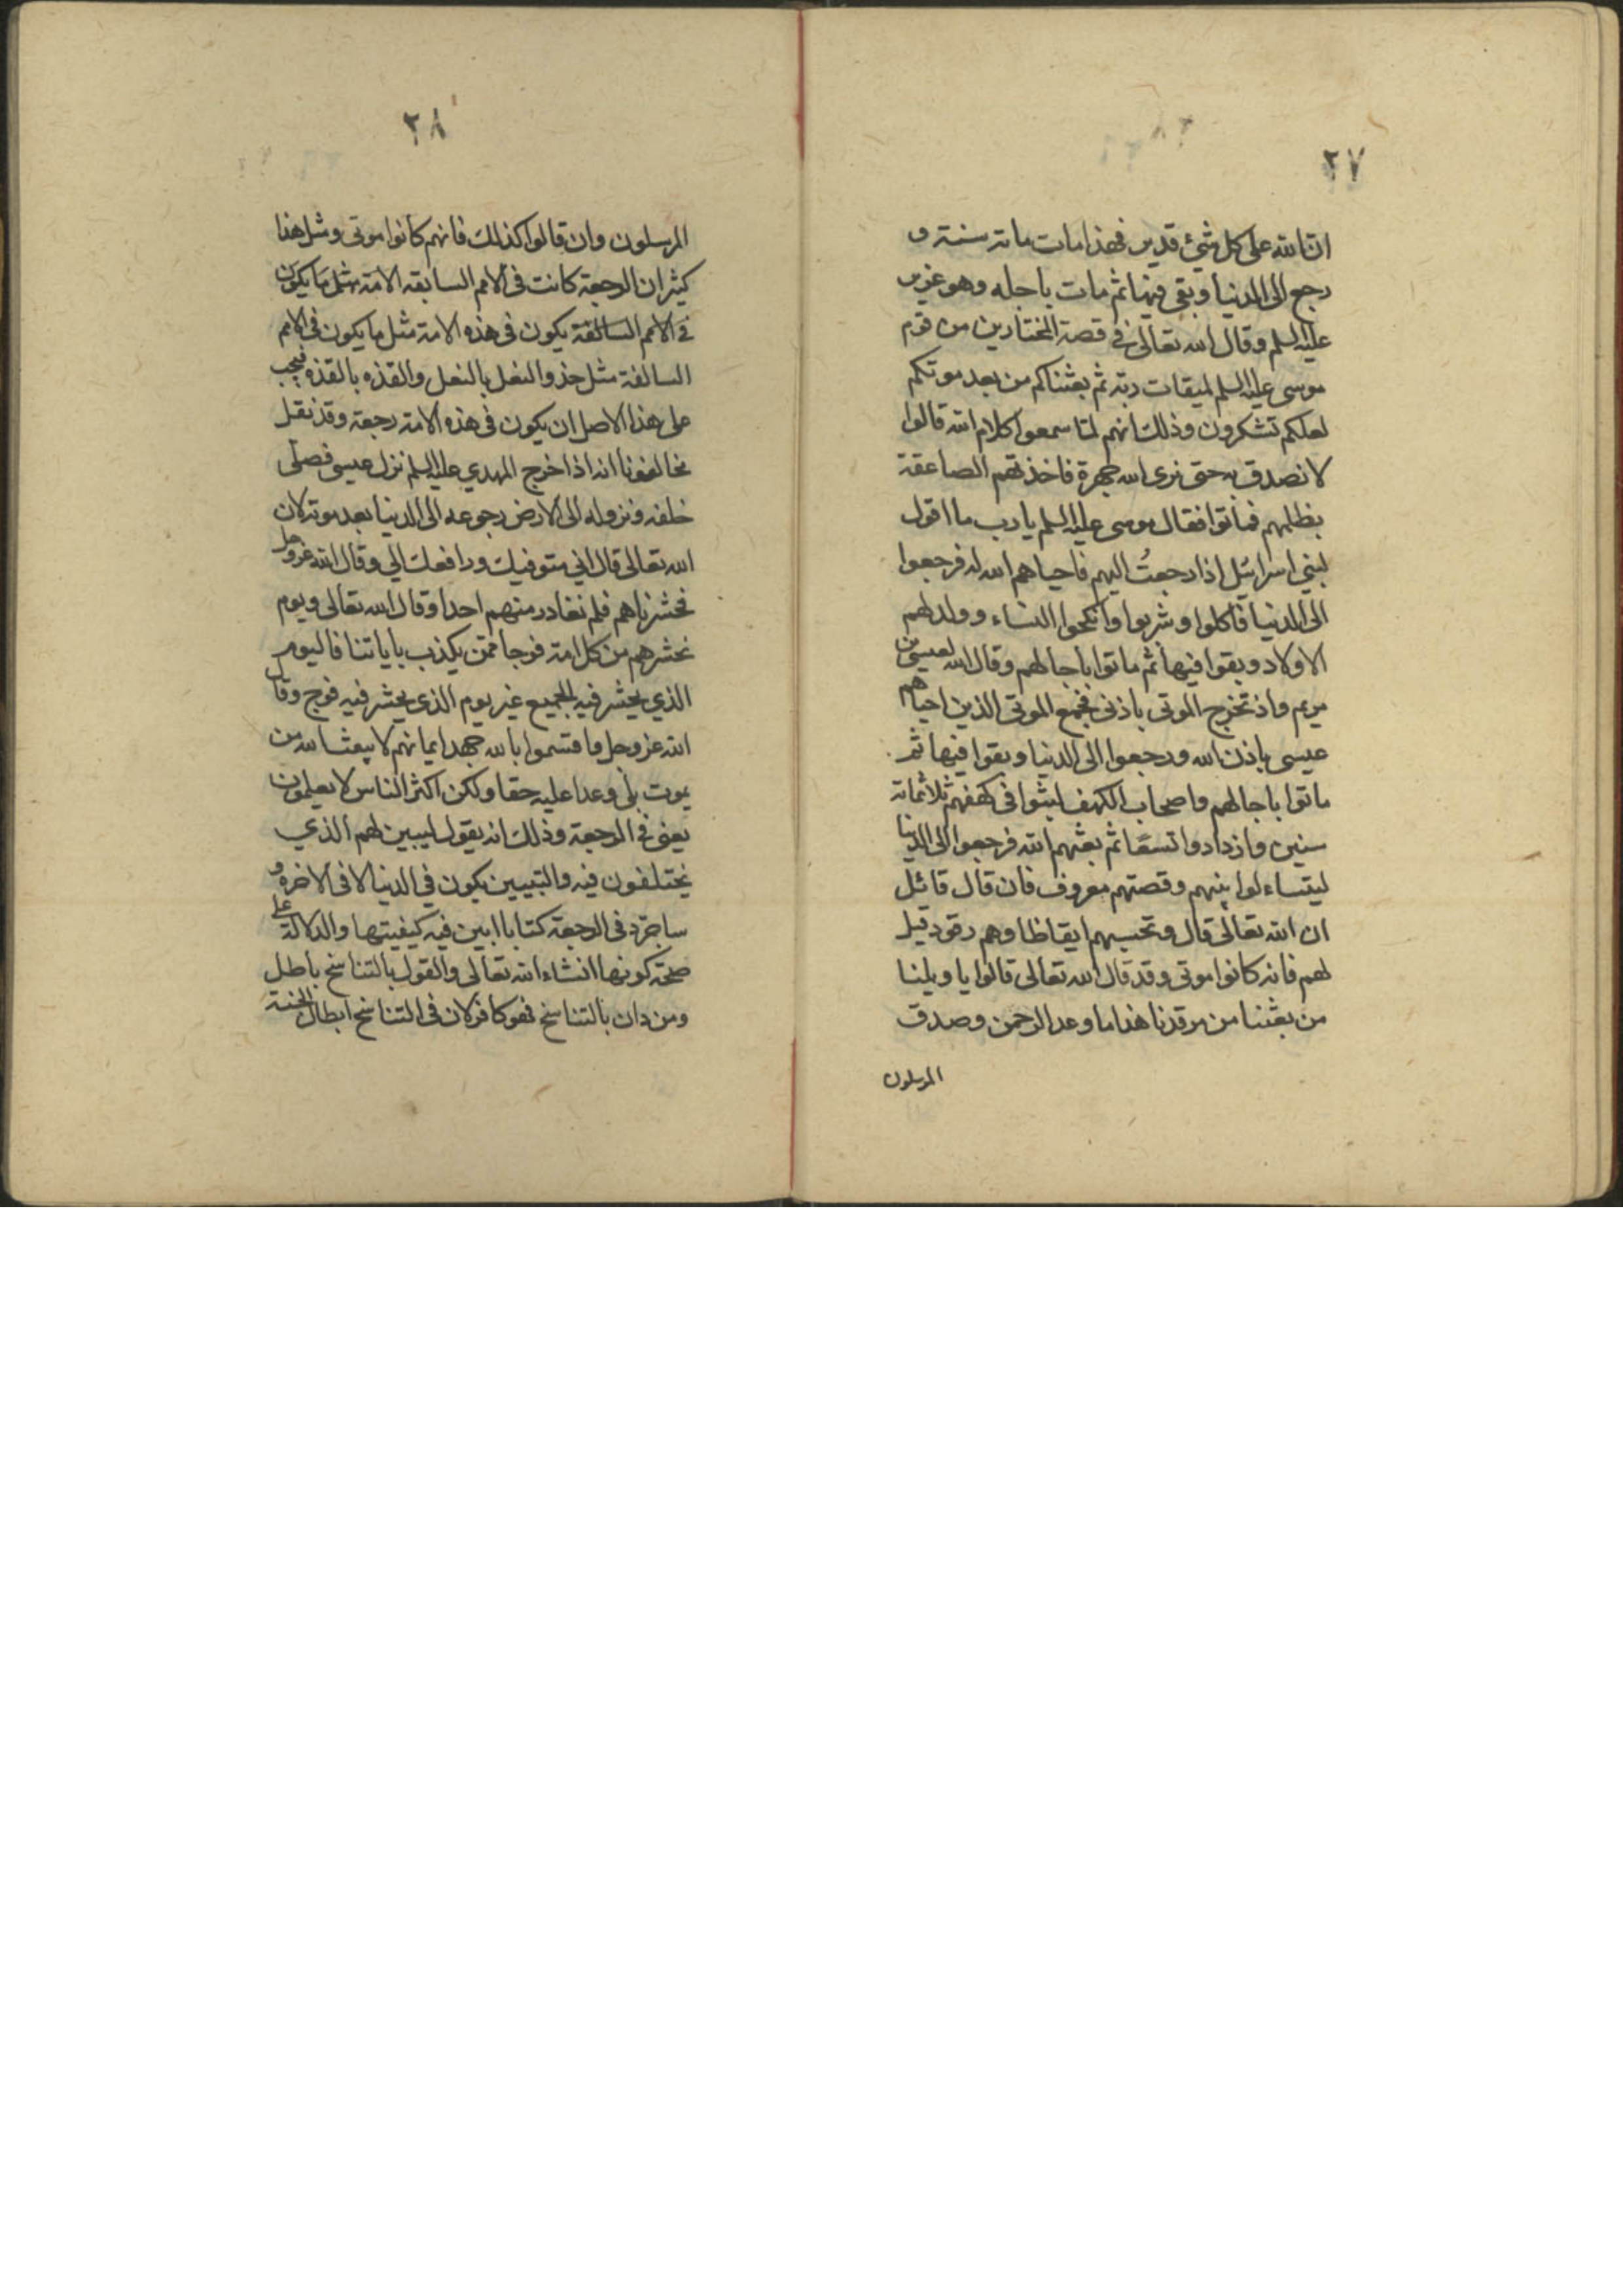 ٢٧
ان الله على كل شيء قدير فهذا مات مائة سنة و
رجع الى الدنيا وبقى فيها ثم مات باجله وهو عزير
عليه السلم وقال الله تعالى في قصة المختارين من قوم
موسى عليه السلم لميقات ربه ثم بعثناكم من بعد موتكم
لعلكم تشكرون وذلك انهم لما سمعوا كلام الله قالوا
لا نصدق به حتى نرى الله جهرة فاخذتهم الصاعقة
بظلمهم فماتوا فقال موسى عليه السلم يا رب ما اقول
لبني اسرائيل اذا رجعتُ اليهم فاحياهم الله له فرجعوا
الى الدنيا فاكلوا وشربوا وانكحوا النساء وولد لهم
الاولاد وبقوا فيها ثم ماتوا باجالهم وقال الله لعيسى بن
مريم واذ تخرج الموتى باذني فجمع الموتى الذين احياهم
عيسى باذن الله ورجعوا الى الدنيا وبقوا فيها ثم
ماتوا باجالهم واصحاب الكهف لبثوا فى كهفهم ثلاثمائة
سنين وازدادوا تسعًا ثم بعثهم الله فرجعوا الى الدنيا
ليتساءلوا بينهم وقصتهم معروف فان قال قائل
ان الله تعالى قال وتحسبهم ايقاظا وهم رقود قيل
لهم فانه كانوا موتى وقد قال الله تعالى قالوا يا ويلنا
من بعثنا من مرقدنا هذا ما وعد الرحمن وصدق
المرسلون
٢٨
المرسلون وان قالوا كذلك فانهم كانوا موتى ومثل هذا
كثير ان الرجعة كانت فى الامم السابقه الامة مثل ما يكون
في الامم السالفة يكون فى هذه الامة مثل ما يكون فى الامم
السالفة مثل حذو النعل بالنعل والقذه بالقذه فيجب
على هذا الاصل ان يكون فى هذه الامة رجعة وقد نقل
مخالفونا انه اذا خرج المهدي عليه السلم نزل عيسى فصلى
خلفه ونزوله الى الارض رجوعه الى الدنيا بعد موته لان
الله تعالى قال اني متوفيك ورافعك الي وقال الله عز وجل
فحشرناهم فلم نغادر منهم احدا وقال الله تعالى ويوم
نحشرهم من كل امة فوجا ممن يكذب باياتنا فاليوم
الذي يحشر فيه الجميع غير يوم الذى يحشر فيه فوج وقال
الله عز وجل واقسموا بالله جهد ايمانهم لا يبعث الله من
يموت بلى وعدا عليه حقا ولكن اكثر الناس لا يعلمون
يعنى في الرجعة وذلك انه يقول ليبين لهم الذي
يختلفون فيه والتبيين يكون في الدنيا لا فى الاخره و
ساجرد فى الرجعة كتابا ابين فيه كيفيتها والدلالة على
صحة كونها انشاء الله تعالى والقول بالتناسخ باطل
ومن دان بالتناسخ فهو كافر لان فى التناسخ ابطال الجنة